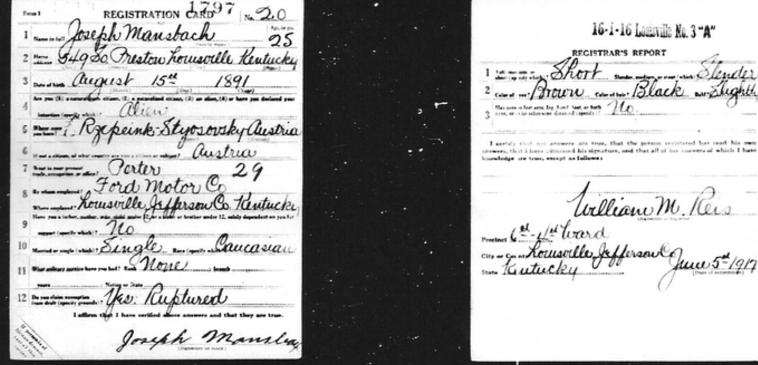 Form 1 REGISTRATION CARD 1797 No. 20
1 Name in full Joseph Mansbach Age, in yrs. 25
2 Home address 549 So Preston Louisville Kentucky
3 Date of birth August 15th 1891
4 Are you (1) a natural-born citizen, (2) a naturalized citizen, (3) an alien, (4) or have you declared your intention (specify which)? Alien
5 Where were you born? Styosovsky Austria
6 If not a citizen, of what country are you a citizen or subject? Austria
7 What is your present trade, occupation, or office? Porter 29
8 By whom employed? Ford Motor Co
Where employed? Louisville Jefferson Co. Kentucky
9 Have you a father, mother, wife, child under 12, or a sister or brother under 12, solely dependent on you for support (specify which)? No
10 Married or single (which)? Single Race (specify which)? Caucasian
11 What military service have you had? Rank None branch
years Nation or State
12 Do you claim exemption from draft (specify grounds)? Yes. Ruptured
I affirm that I have verified above answers and that they are true.
Joseph Mansbach
16-1-16 Louisville No. 3 "A"
REGISTRAR'S REPORT
1 Tall, medium, or short (specify which)? Short Slender, medium, or stout (which)? Slender
2 Color of eyes? Brown Color of hair? Black Bald? Slightly
3 Has person lost arm, leg, hand, foot, or both No.
I certify that my answers are true, that the person registered has read his own answers, that I have witnessed his signature, and that all of his answers of which I have knowledge are true, except as follows:
William M. Reis
Precinct 6th - 4th Ward
City or County Louisville Jefferson Co
State Kentucky June 5th 1917